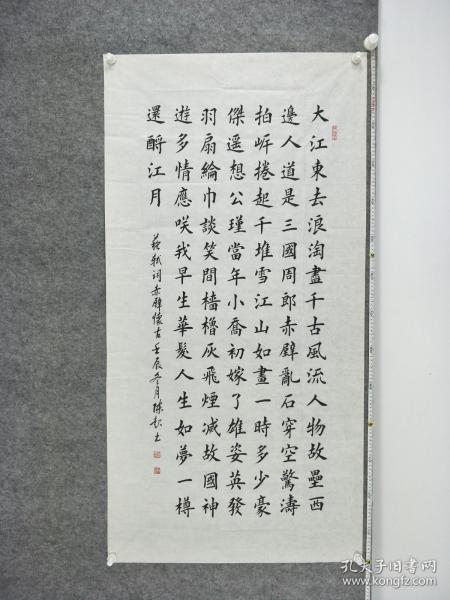 大江東去浪淘盡千古風流人物故壘西
邊人道是三國周郎赤壁亂石穿空驚濤
拍岸捲起千堆雪江山如畫一時多少豪
傑遥想公瑾當年小喬初嫁了雄姿英發
羽扇綸巾談笑間檣櫓灰飛煙滅故國神
遊多情應咲我早生華髮人生如夢一樽
還酹江月
蘇軾词赤壁懷古壬辰冬月陈书
孔夫子旧书网
www.kongfz.com